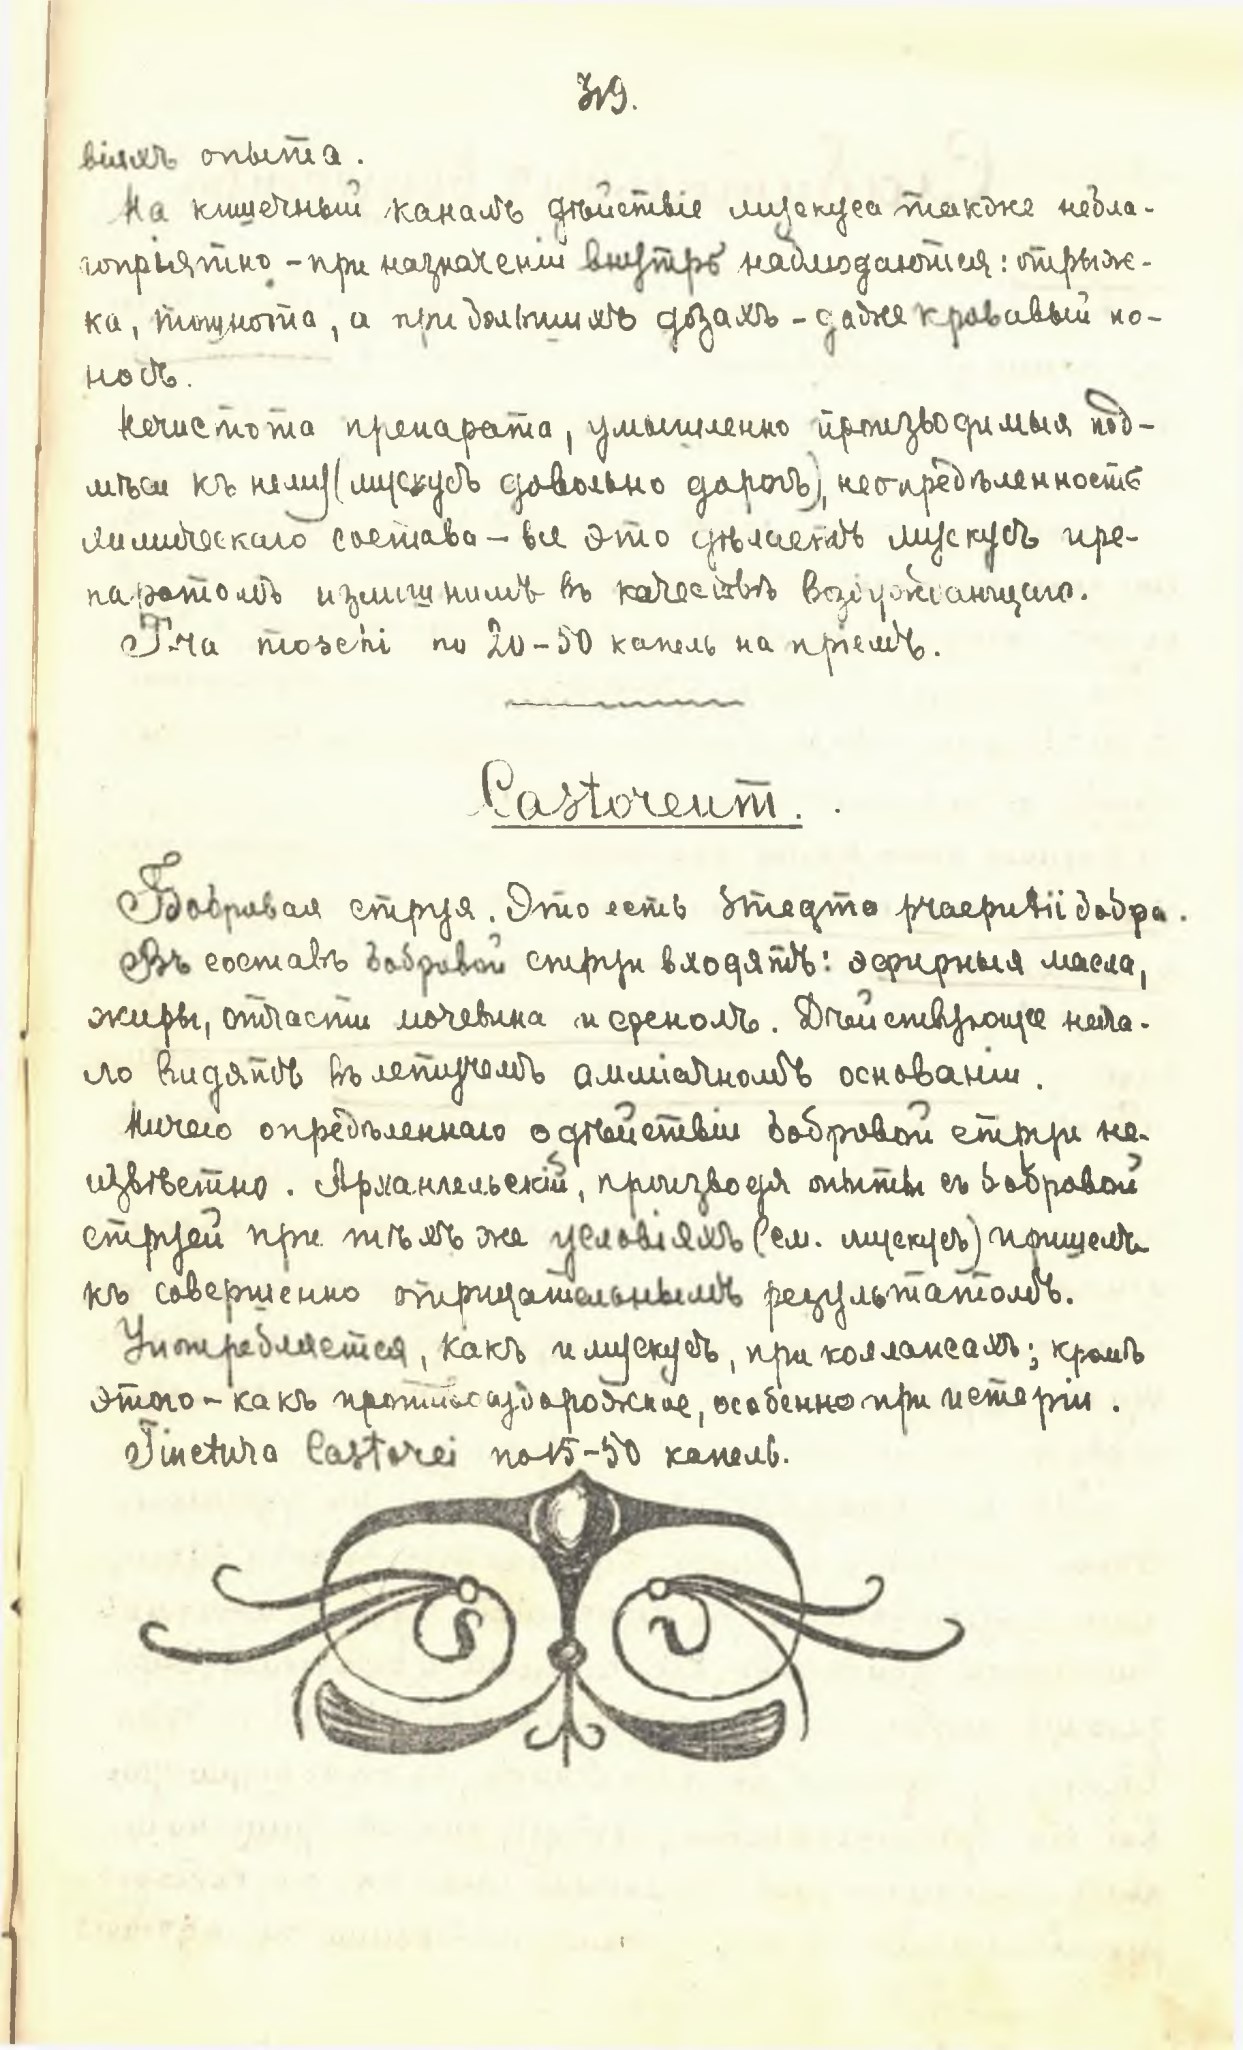 319.
віяхъ опыта.
На кишечный каналъ дѣйствіе мускуса также небла-
гопріятно – при назначеніи внутрь наблюдаются: отрыж-
ка, тошнота, а при большихъ дозахъ – даже кровавый по-
носъ.
Нечистота препарата, умышленно производимыя под-
мѣси къ нему (мускусъ довольно дорогъ), неопредѣленность
химическаго состава – все это дѣлаетъ мускусъ пре-
паратомъ излишнимъ въ качествѣ возбуждающаго.
T-ra moschi по 20–50 капель на пріемъ.
Castoreum.
Бобровая струя. Это есть smegma praeputii бобра.
Въ составъ бобровой струи входятъ: эфирныя масла,
жиры, отчасти мочевина и фенолъ. Дѣйствующее нача-
ло видятъ въ летучемъ амміачномъ основаніи.
Ничего опредѣленнаго о дѣйствіи бобровой струи не-
извѣстно. Архангельскій, производя опыты съ бобровой
струей при тѣхъ же условіяхъ (см. мускусъ) пришелъ
къ совершенно отрицательнымъ результатомъ.
Употребляется, какъ и мускусъ, при коллапсахъ; кромѣ
этого – какъ противосудорожное, особенно при истеріи.
Tinctura Castorei по 15–50 капель.